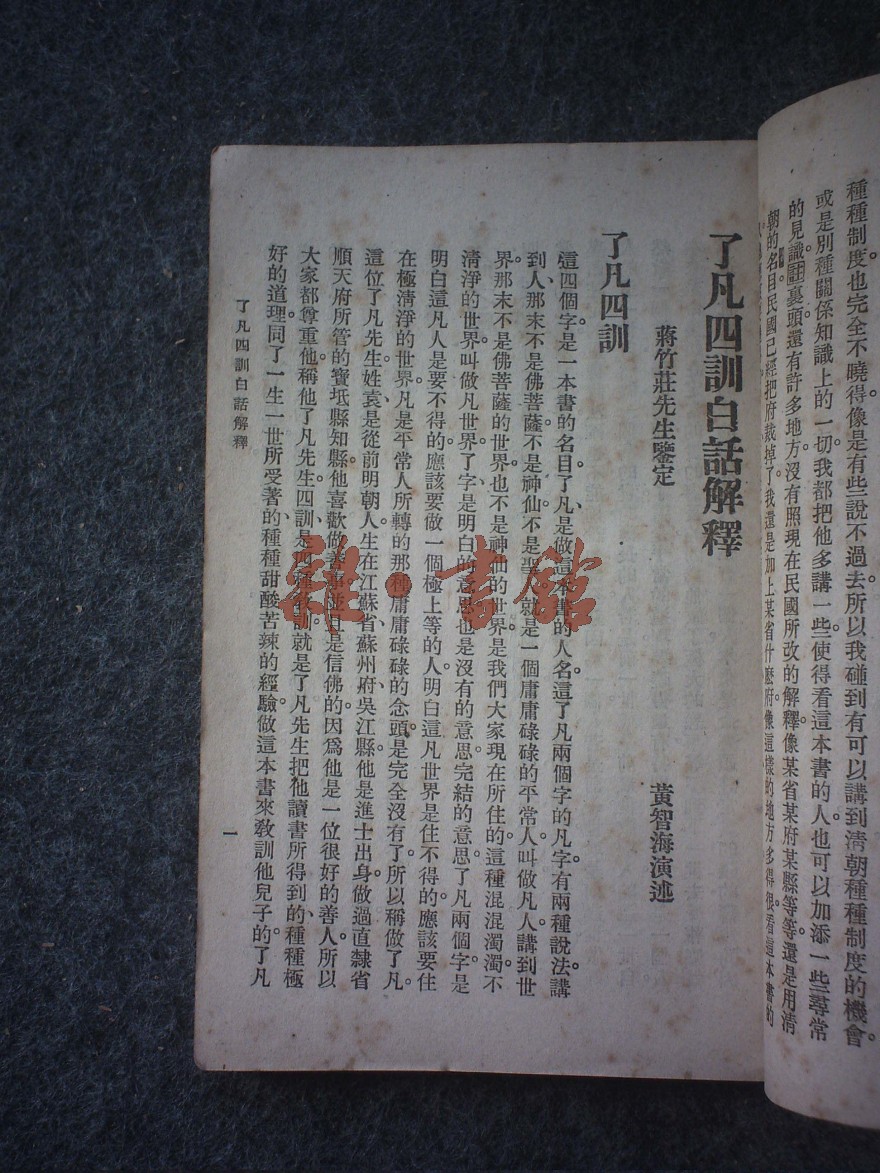 種種制度也完全不曉得像是有些說不過去。所以我碰到有可以講到清朝種種制度的機會。
或是別種關係知識上的一切。我都把他多講一些。使得看這本書的人。也可以加添一些尋常
的見識。註裏頭。還有許多地方。沒有照現在民國所改的解釋。像某省某府某縣等等。還是用清
朝的名目。民國已經把府裁掉了。我還是加上某省什麽府。像這樣的地方多得很。看這本書的
了凡四訓白話解釋
蔣竹莊先生鑒定
黃智海演述
了凡四訓
這四個字是一本書的名目。了凡、是做這本書的人名。這了凡兩個字的凡字。有兩種說法。講
到人。那末不是佛菩薩。不是神仙。不是聖人。就是一個庸庸碌碌的平常人。叫做凡人。講到世
界。那末不是佛菩薩的世界。也不是神仙的世界。是我們大家現在所住的這種混混濁濁。不
清淨的世界。叫做凡世界。了字、是明白的意思。也是沒有的意思。完結的意思。了凡兩個字。是
明白這凡人是要不得的。應該要做一個極上等的人。明白這凡世界是住不得的。應該要住
在極清淨的世界。凡是平常人所轉的那種庸庸碌碌的念頭。是完全沒有了。所以稱做了凡。
這位了凡先生。姓袁。是從前明朝人。生在江蘇省、蘇州府、吳江縣。他是進士出身。做過直隸省
順天府所管的寶坻縣知縣。他喜歡做善事。並且是信佛的。因爲他是一位很好的善人。所以
大家都尊重他。稱他了凡先生。四訓、是四種敎訓。就是了凡先生。把他讀書所得到的、種種極
好的道理。同了一生一世所受著的、種種甜酸苦辣的經驗。做這本書來敎訓他兒子的。了凡
了凡四訓白話解釋
一
雜·書館